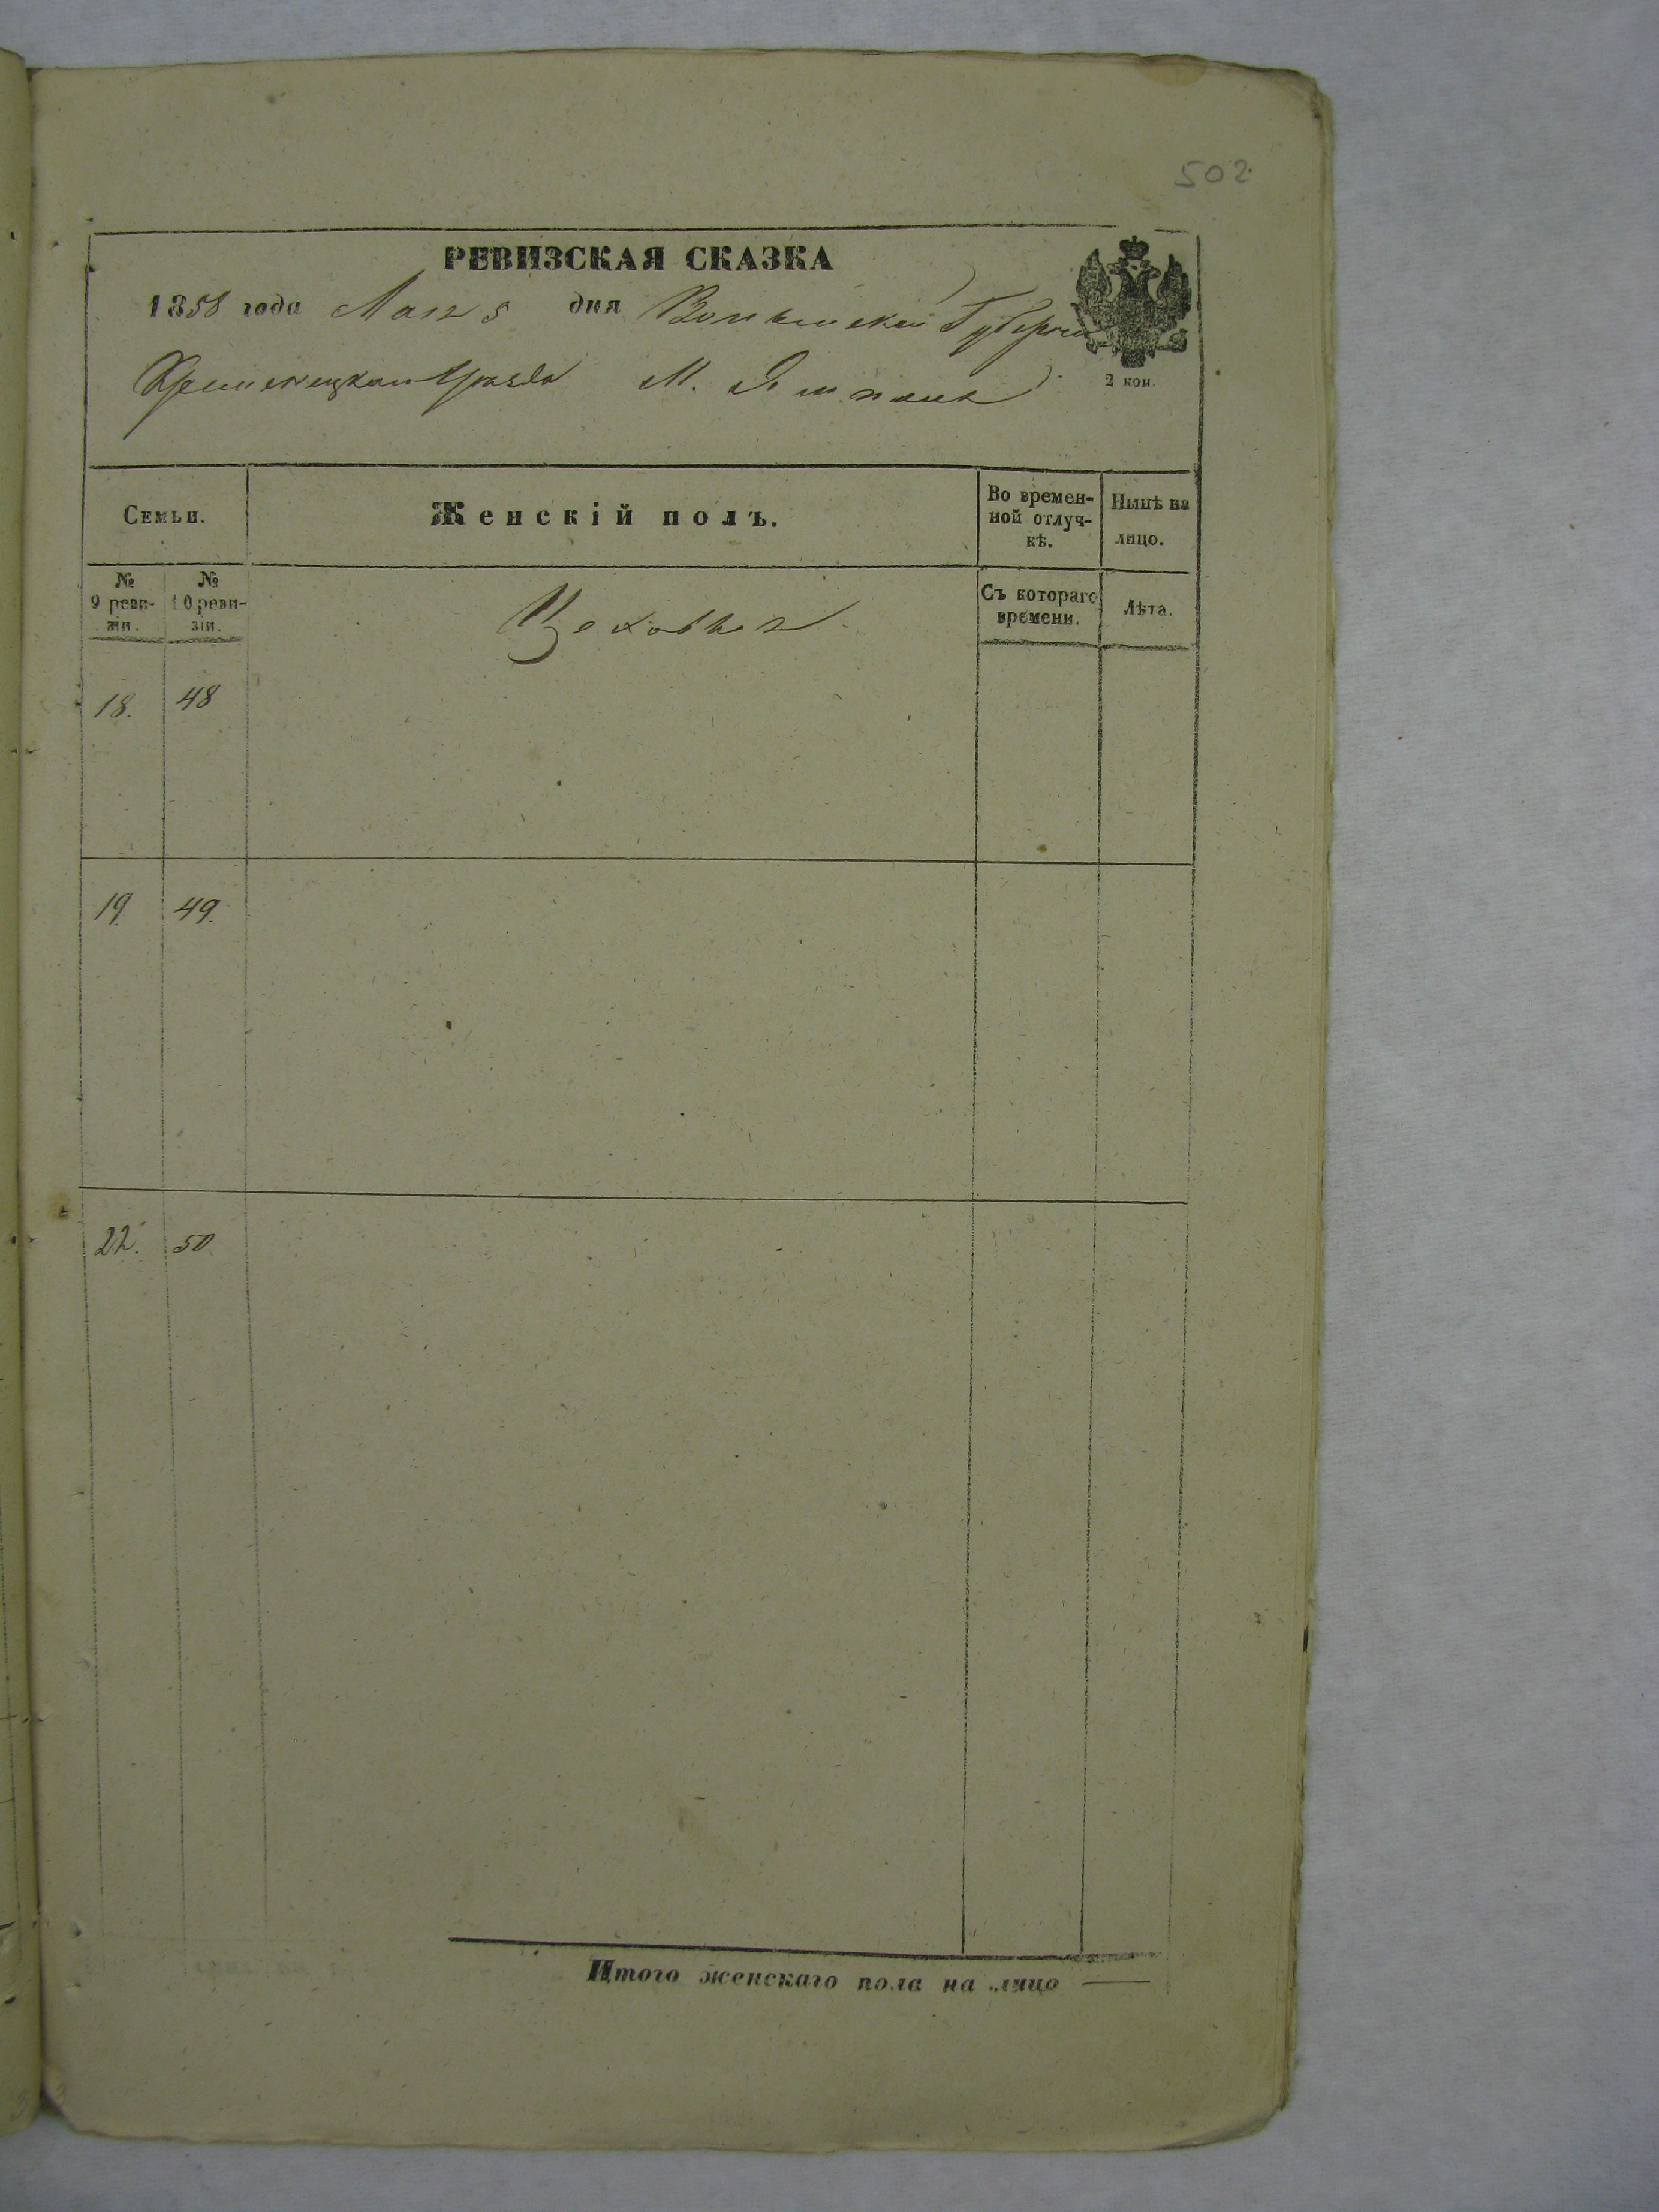 502
РЕВИЗСКАЯ СКАЗКА
1858 года Мая 5 дня Волынской Губерніи
Кременецкаго Уѣзда М. Ямполь
2 коп.
Семьи.
Женскій полъ.
Во времен-
ной отлуч-
кѣ.
Нынѣ на
лицо.
№
9 реви-
зіи.
№
10 реви-
зіи.
Цеховыя
Съ котораго
времени.
Лѣта.
18. 48
19. 49.
22. 50
Итого женскаго пола на лицо —